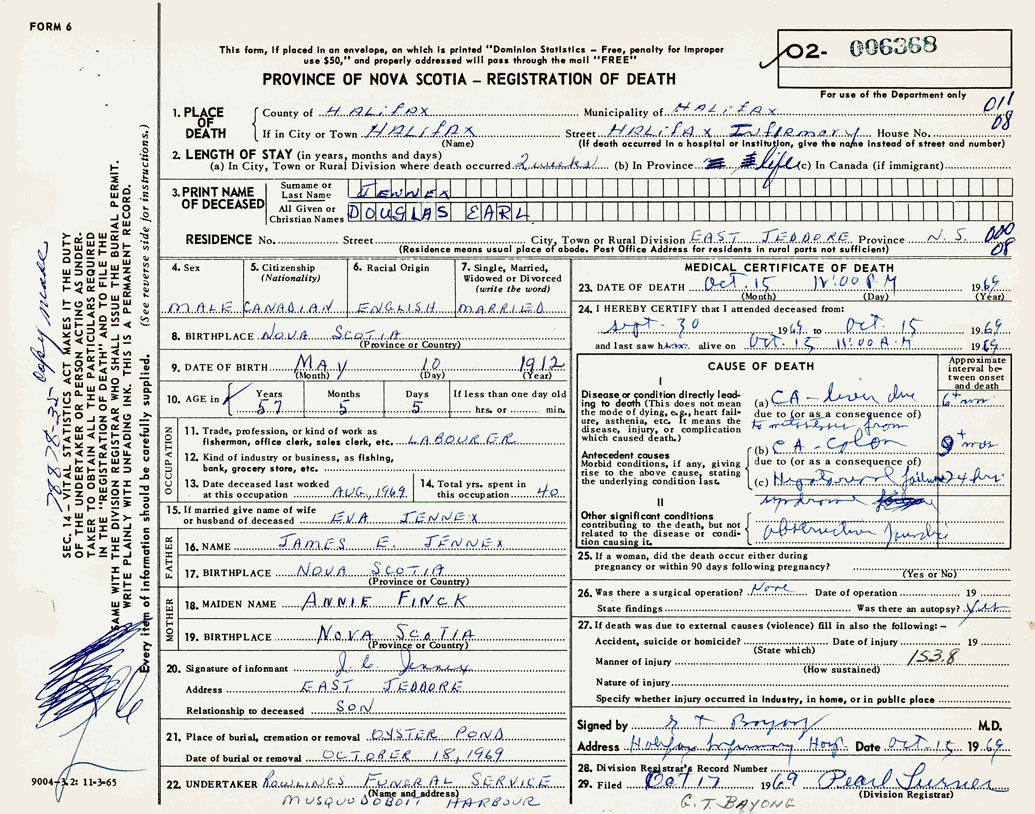 FORM 6
This form, if placed in an envelope, on which is printed "Dominion Statistics – Free, penalty for improper
use $50," and properly addressed will pass through the mail "FREE"
PROVINCE OF NOVA SCOTIA – REGISTRATION OF DEATH
02- 006368
For use of the Department only
011
08
1. PLACE OF DEATH
County of HALIFAX Municipality of HALIFAX
If in City or Town HALIFAX Street HALIFAX Infirmary House No.
(Name) (If death occurred in a hospital or institution, give the name instead of street and number)
2. LENGTH OF STAY (in years, months and days)
(a) In City, Town or Rural Division where death occurred 2 weeks (b) In Province life (c) In Canada (if immigrant)
3. PRINT NAME OF DECEASED
Surname or Last Name JENNEX
All Given or Christian Names DOUGLAS EARL
RESIDENCE No. Street City, Town or Rural Division EAST JEDDORE Province N.S. 000
08
(Residence means usual place of abode. Post Office Address for residents in rural parts not sufficient)
4. Sex 5. Citizenship (Nationality) 6. Racial Origin 7. Single, Married, Widowed or Divorced (write the word)
MALE CANADIAN ENGLISH MARRIED
8. BIRTHPLACE NOVA SCOTIA
(Province or Country)
9. DATE OF BIRTH MAY 10 1912
(Month) (Day) (Year)
10. AGE in Years Months Days If less than one day old
57 5 5 hrs. or min.
OCCUPATION
11. Trade, profession, or kind of work as
fisherman, office clerk, sales clerk, etc. LABOURER
12. Kind of industry or business, as fishing,
bank, grocery store, etc.
13. Date deceased last worked
at this occupation AUG, 1969
14. Total yrs. spent in
this occupation 40
15. If married give name of wife
or husband of deceased EVA JENNEX
FATHER
16. NAME JAMES E. JENNEX
17. BIRTHPLACE NOVA SCOTIA
(Province or Country)
MOTHER
18. MAIDEN NAME ANNIE FINCK
19. BIRTHPLACE NOVA SCOTIA
(Province or Country)
20. Signature of informant J. E. Jennex
Address EAST JEDDORE
Relationship to deceased SON
21. Place of burial, cremation or removal OYSTER POND
Date of burial or removal OCTOBER 18, 1969
22. UNDERTAKER ROWLINGS FUNERAL SERVICE
(Name and address)
MUSQUODOBOIT HARBOUR
MEDICAL CERTIFICATE OF DEATH
23. DATE OF DEATH Oct. 15 1969
(Month) (Day) (Year)
24. I HEREBY CERTIFY that I attended deceased from:
Sept. 30 1969 to Oct. 15 1969
and last saw him alive on Oct. 15 11:00 A.M 1969
CAUSE OF DEATH
Approximate interval between onset and death
I
Disease or condition directly leading to death (This does not mean
the mode of dying, e.g., heart failure, asthenia, etc. It means the
disease, injury, or complication
which caused death.)
(a) CA - liver due 6+ mos
due to (or as a consequence of)
to metastases from
(b) CA - Colon 9+ mos
Antecedent causes
Morbid conditions, if any, giving
rise to the above cause, stating
the underlying condition last.
due to (or as a consequence of)
(c) Hepatorenal failure 24 hrs
syndrome
II
Other significant conditions
contributing to the death, but not
related to the disease or condition causing it.
Obstructive Jaundice
25. If a woman, did the death occur either during
pregnancy or within 90 days following pregnancy?
(Yes or No)
26. Was there a surgical operation? None Date of operation 19
State findings Was there an autopsy? Yes
27. If death was due to external causes (violence) fill in also the following: –
Accident, suicide or homicide? Date of injury 19
(State which)
Manner of injury 153.8
(How sustained)
Nature of injury
Specify whether injury occurred in industry, in home, or in public place
Signed by G T Bayong M.D.
Address Halifax Infirmary Hosp. Date Oct. 15 1969
28. Division Registrar's Record Number
29. Filed Oct 17 1969 Pearl Turner
(Division Registrar)
G. T. BAYONG
78878-35-Copy made
SEC. 14 – VITAL STATISTICS ACT MAKES IT THE DUTY
OF THE UNDERTAKER OR PERSON ACTING AS UNDERTAKER TO OBTAIN ALL THE PARTICULARS REQUIRED
IN THE "REGISTRATION OF DEATH" AND TO FILE THE
SAME WITH THE DIVISION REGISTRAR WHO SHALL ISSUE THE BURIAL PERMIT.
WRITE PLAINLY WITH UNFADING INK. THIS IS A PERMANENT RECORD.
Every item of information should be carefully supplied. (See reverse side for instructions.)
9004–3.2: 11-3-65